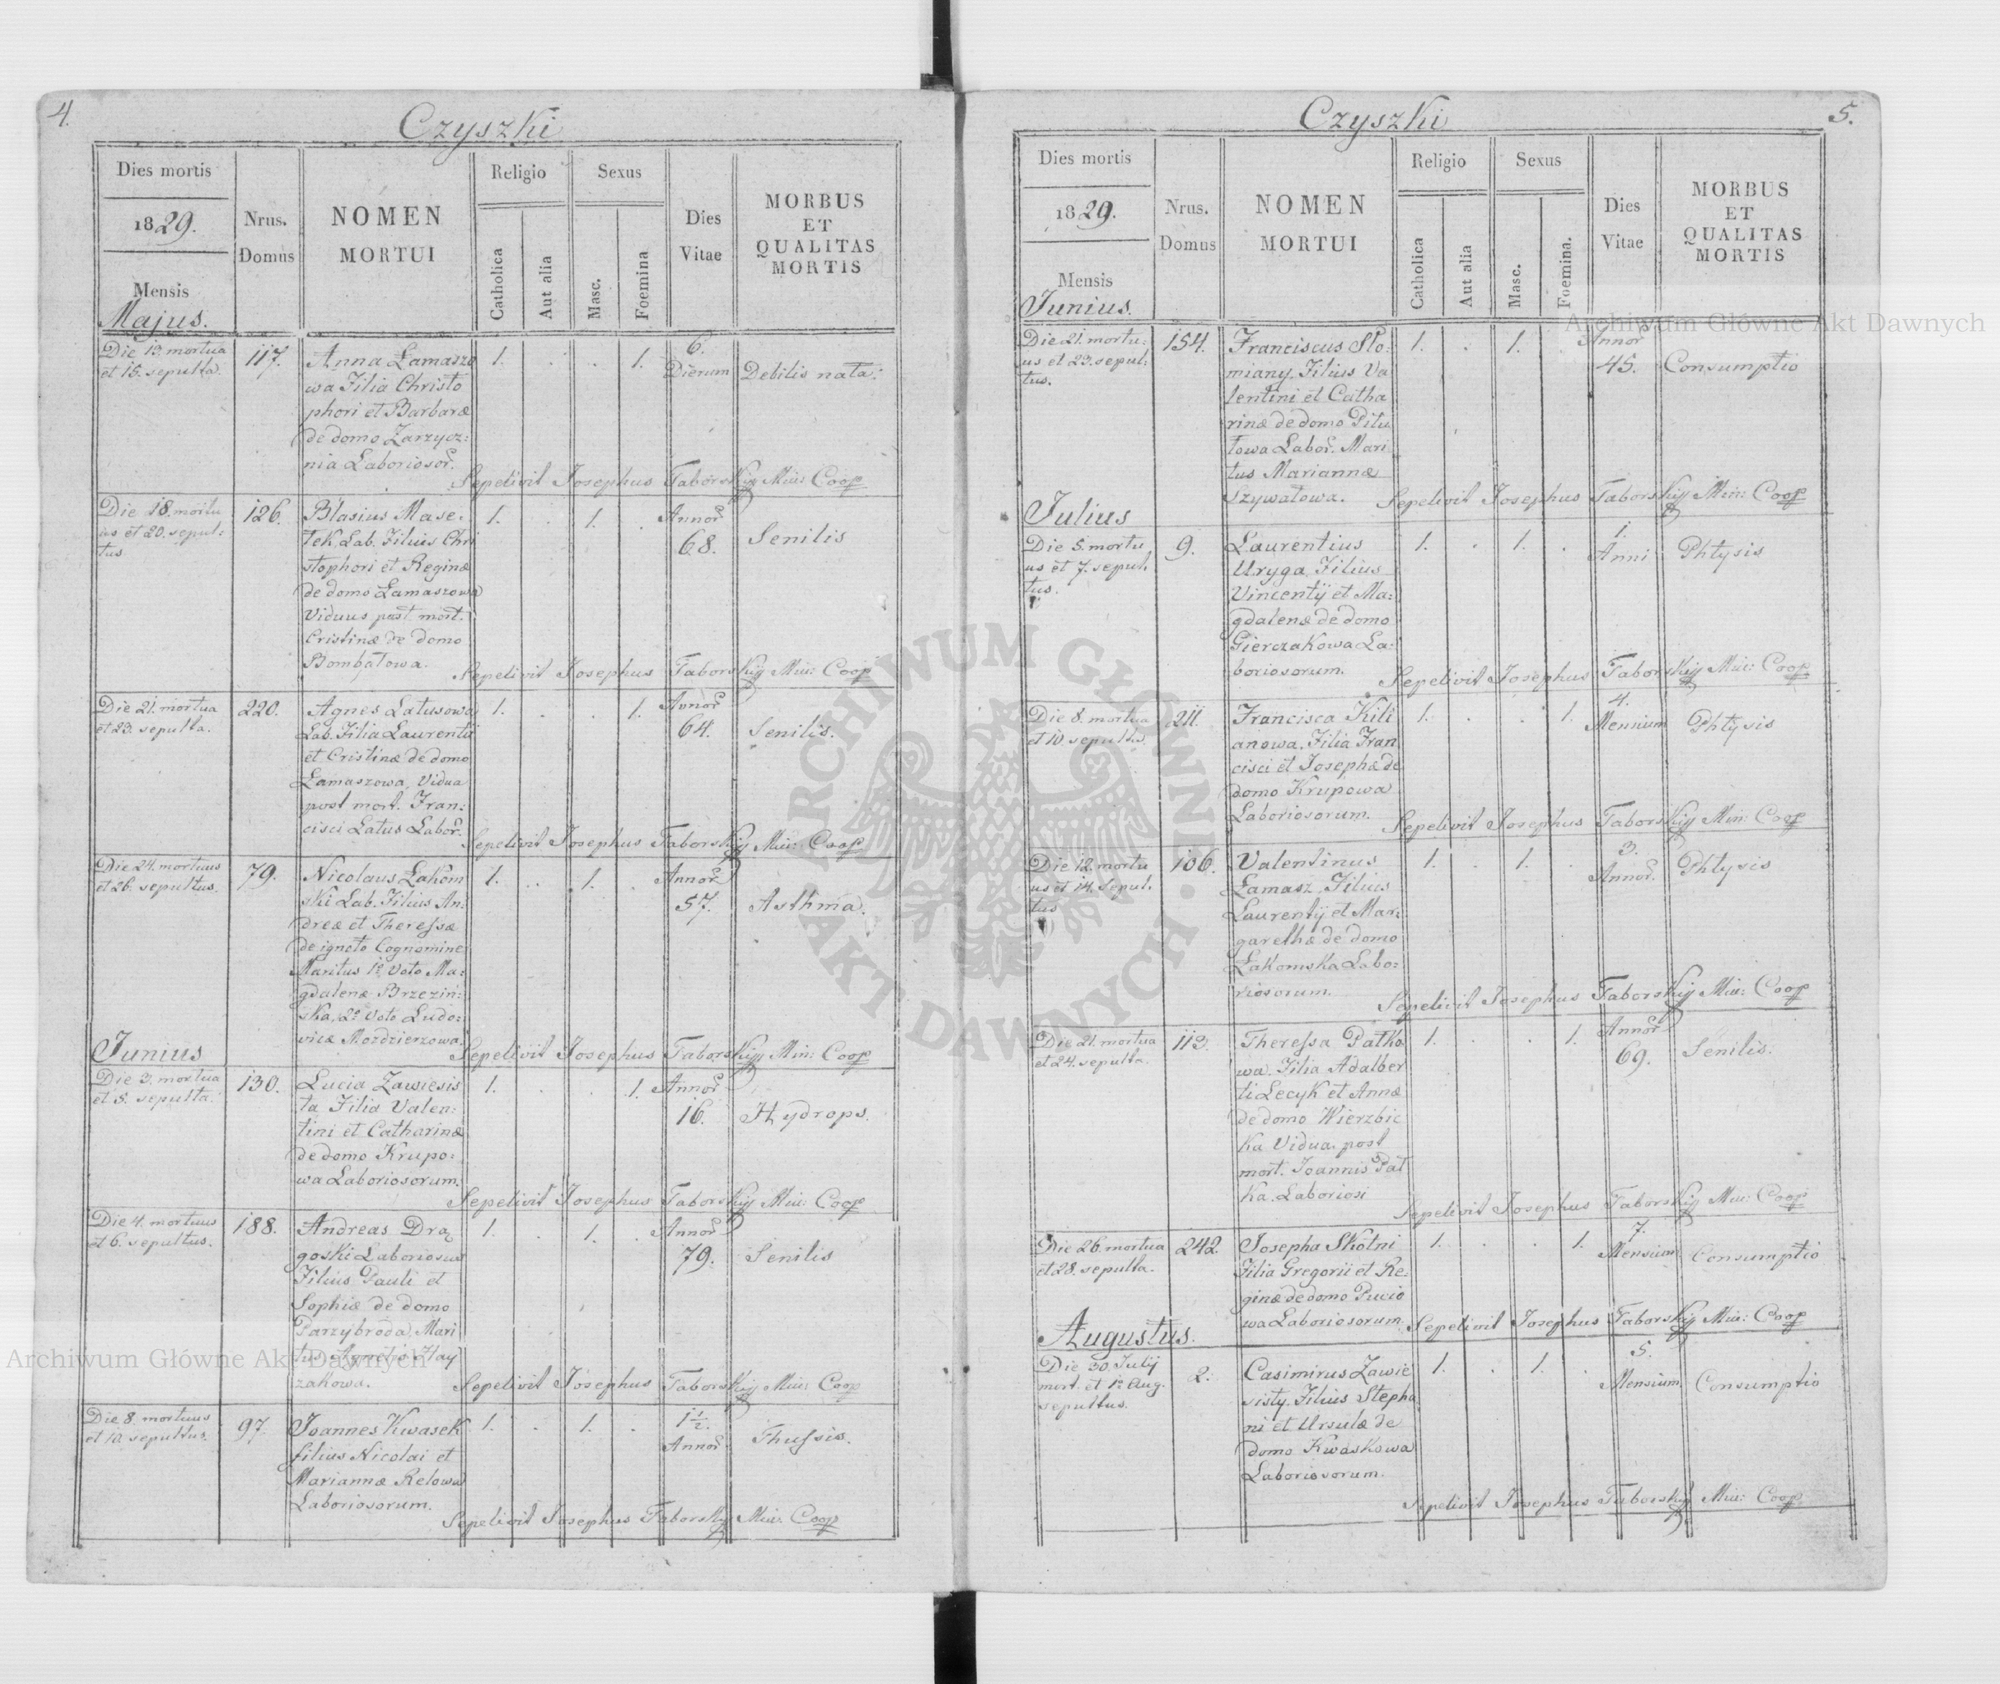 4.
Czyszki
Dies mortis
1829.
Mensis
Majus.
Nrus.
Domus
NOMEN
MORTUI
Religio
Catholica
Aut alia
Sexus
Masc.
Foemina
Dies
Vitae
MORBUS
ET
QUALITAS
MORTIS
Die 13. mortua
et 15. sepulta.
117.
Anna Łamaszo
wa Filia Christo
phori et Barbaræ
de domo Zarzycz:
nia Laboriosor.
1. . . 1.
6.
Dierum
Debilis nata.
Sepelivit Josephus Taborskij Min: Coop
Die 18. mortu
us et 20. sepul:
tus
126.
Blasius Mase:
łek Lab. Filius Chri
stophori et Reginæ
de domo Łamaszowa
Viduus post mort.
Cristinæ de domo
Bombałowa.
1. . 1. .
Annor.
68.
Senilis
Sepelivit Josephus Taborskij Min: Coop
Die 21. mortua
et 23. sepulta.
220.
Agnes Latusowa
Lab. Filia Laurentii
et Cristinæ de domo
Łamaszowa, Vidua
post mort. Fran:
cisci Latus Labor.
1. . . 1.
Annor.
64.
Senilis.
Sepelivit Josephus Taborskij Min: Coop
Die 24. mortuus
et 26. sepultus.
79.
Nicolaus Łakom
ski Lab. Filius An:
dreæ et Theressæ
de ignoto Cognomine
Maritus 1º Voto Ma:
gdalenæ Brzeziń:
ska, 2º Voto Ludo:
vicæ Mozdzierzowa
1. . 1. .
Annor.
57.
Asthma.
Sepelivit Josephus Taborskij Min: Coop
Junius
Die 3. mortua
et 5. sepulta.
130.
Lucia Zawiesis
ta Filia Valen:
tini et Catharinæ
de domo Krupo:
wa Laboriosorum.
1. . . 1.
Annor.
16.
Hydrops.
Sepelivit Josephus Taborskij Min: Coop
Die 4. mortuus
et 6. sepultus.
188.
Andreas Drą
goski Laboriosus
Filius Pauli et
Sophiæ de domo
Parzybroda, Mari
tus Agnetis Hay
zakowa.
1. . 1. .
Annor.
79.
Senilis
Sepelivit Josephus Taborskij Min: Coop
Die 8. mortuus
et 10. sepultus.
97.
Joannes Kwasek
filius Nicolai et
Mariannæ Relowa
Laboriosorum.
1. . 1. .
1 1/2.
Annor.
Thussis.
Sepelivit Josephus Taborskij Min: Coop
5.
Czyszki
Dies mortis
1829.
Mensis
Junius.
Nrus.
Domus
NOMEN
MORTUI
Religio
Catholica
Aut alia
Sexus
Masc.
Foemina.
Dies
Vitae
MORBUS
ET
QUALITAS
MORTIS
Die 21. mortu:
us et 23. sepul:
tus.
154.
Franciscus Sło:
miany, Filius Va
lentini et Catha
rinæ de domo Pitu
łowa Labor. Mari
tus Mariannæ
Szywałowa.
1. . 1. .
Annor
45.
Consumptio
Sepelivit Josephus Taborskij Min: Coop
Julius
Die 5. mortu
us et 7. sepul:
tus.
9.
Laurentius
Uryga, Filius
Vincentij et Ma:
gdalenæ de domo
Gierczakowa La:
boriosorum.
1. . 1. .
1.
Anni
Phtysis
Sepelivit Josephus Taborskij Min: Coop
Die 8. mortua
et 10. sepulta.
211.
Francisca Kili
anowa, Filia Fran
cisci et Josephæ de
domo Krupowa
Laboriosorum.
1. . . 1.
4.
Mensium
Phtysis
Sepelivit Josephus Taborskij Min: Coop
Die 12. mortu
us et 14. sepul:
tus
106.
Valentinus
Łamasz, Filius
Laurentij et Mar:
garethæ de domo
Łakomska Labo:
riosorum.
1. . 1. .
3.
Annor.
Phtysis
Sepelivit Josephus Taborskij Min: Coop
Die 21. mortua
et 24. sepulta.
113.
Theressa Patko
wa. Filia Adalber
ti Lecyk et Annæ
de domo Wierzbic
ka Vidua post
mort. Joannis Pat
ka. Laboriosi
1. . . 1.
Annor
69.
Senilis.
Sepelivit Josephus Taborskij Min: Coop
Die 26. mortua
et 28. sepulta.
242.
Josepha Skotni
Filia Gregorii et Re:
ginæ de domo Pucio
wa Laboriosorum.
1. . . 1.
7.
Mensium
Consumptio
Sepelivit Josephus Taborskij Min: Coop
Augustus.
Die 30. Julij
mort. et 1º Aug.
sepultus.
2.
Casimirus Zawie
sisty, Filius Stepha
ni et Ursulæ de
domo Kwaskowa
Laboriosorum.
1. . 1. .
5.
Mensium.
Consumptio
Sepelivit Josephus Taborskij Min: Coop
Archiwum Główne Akt Dawnych
Archiwum Główne Akt Dawnych
ARCHIWUM GŁÓWNE AKT DAWNYCH